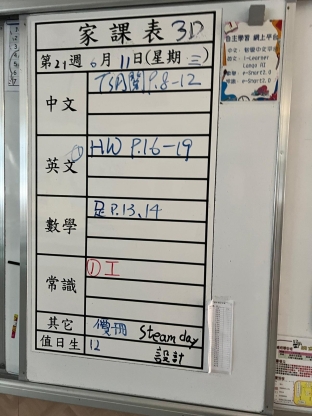 家課表 3D
第21週 6月11日(星期三)
中文
T5閱 P.8-12
英文
HW P.16-19
數學
P.13,14
常識
① 工
其它
Steam day
設計
值日生 12
自主學習 網上平台